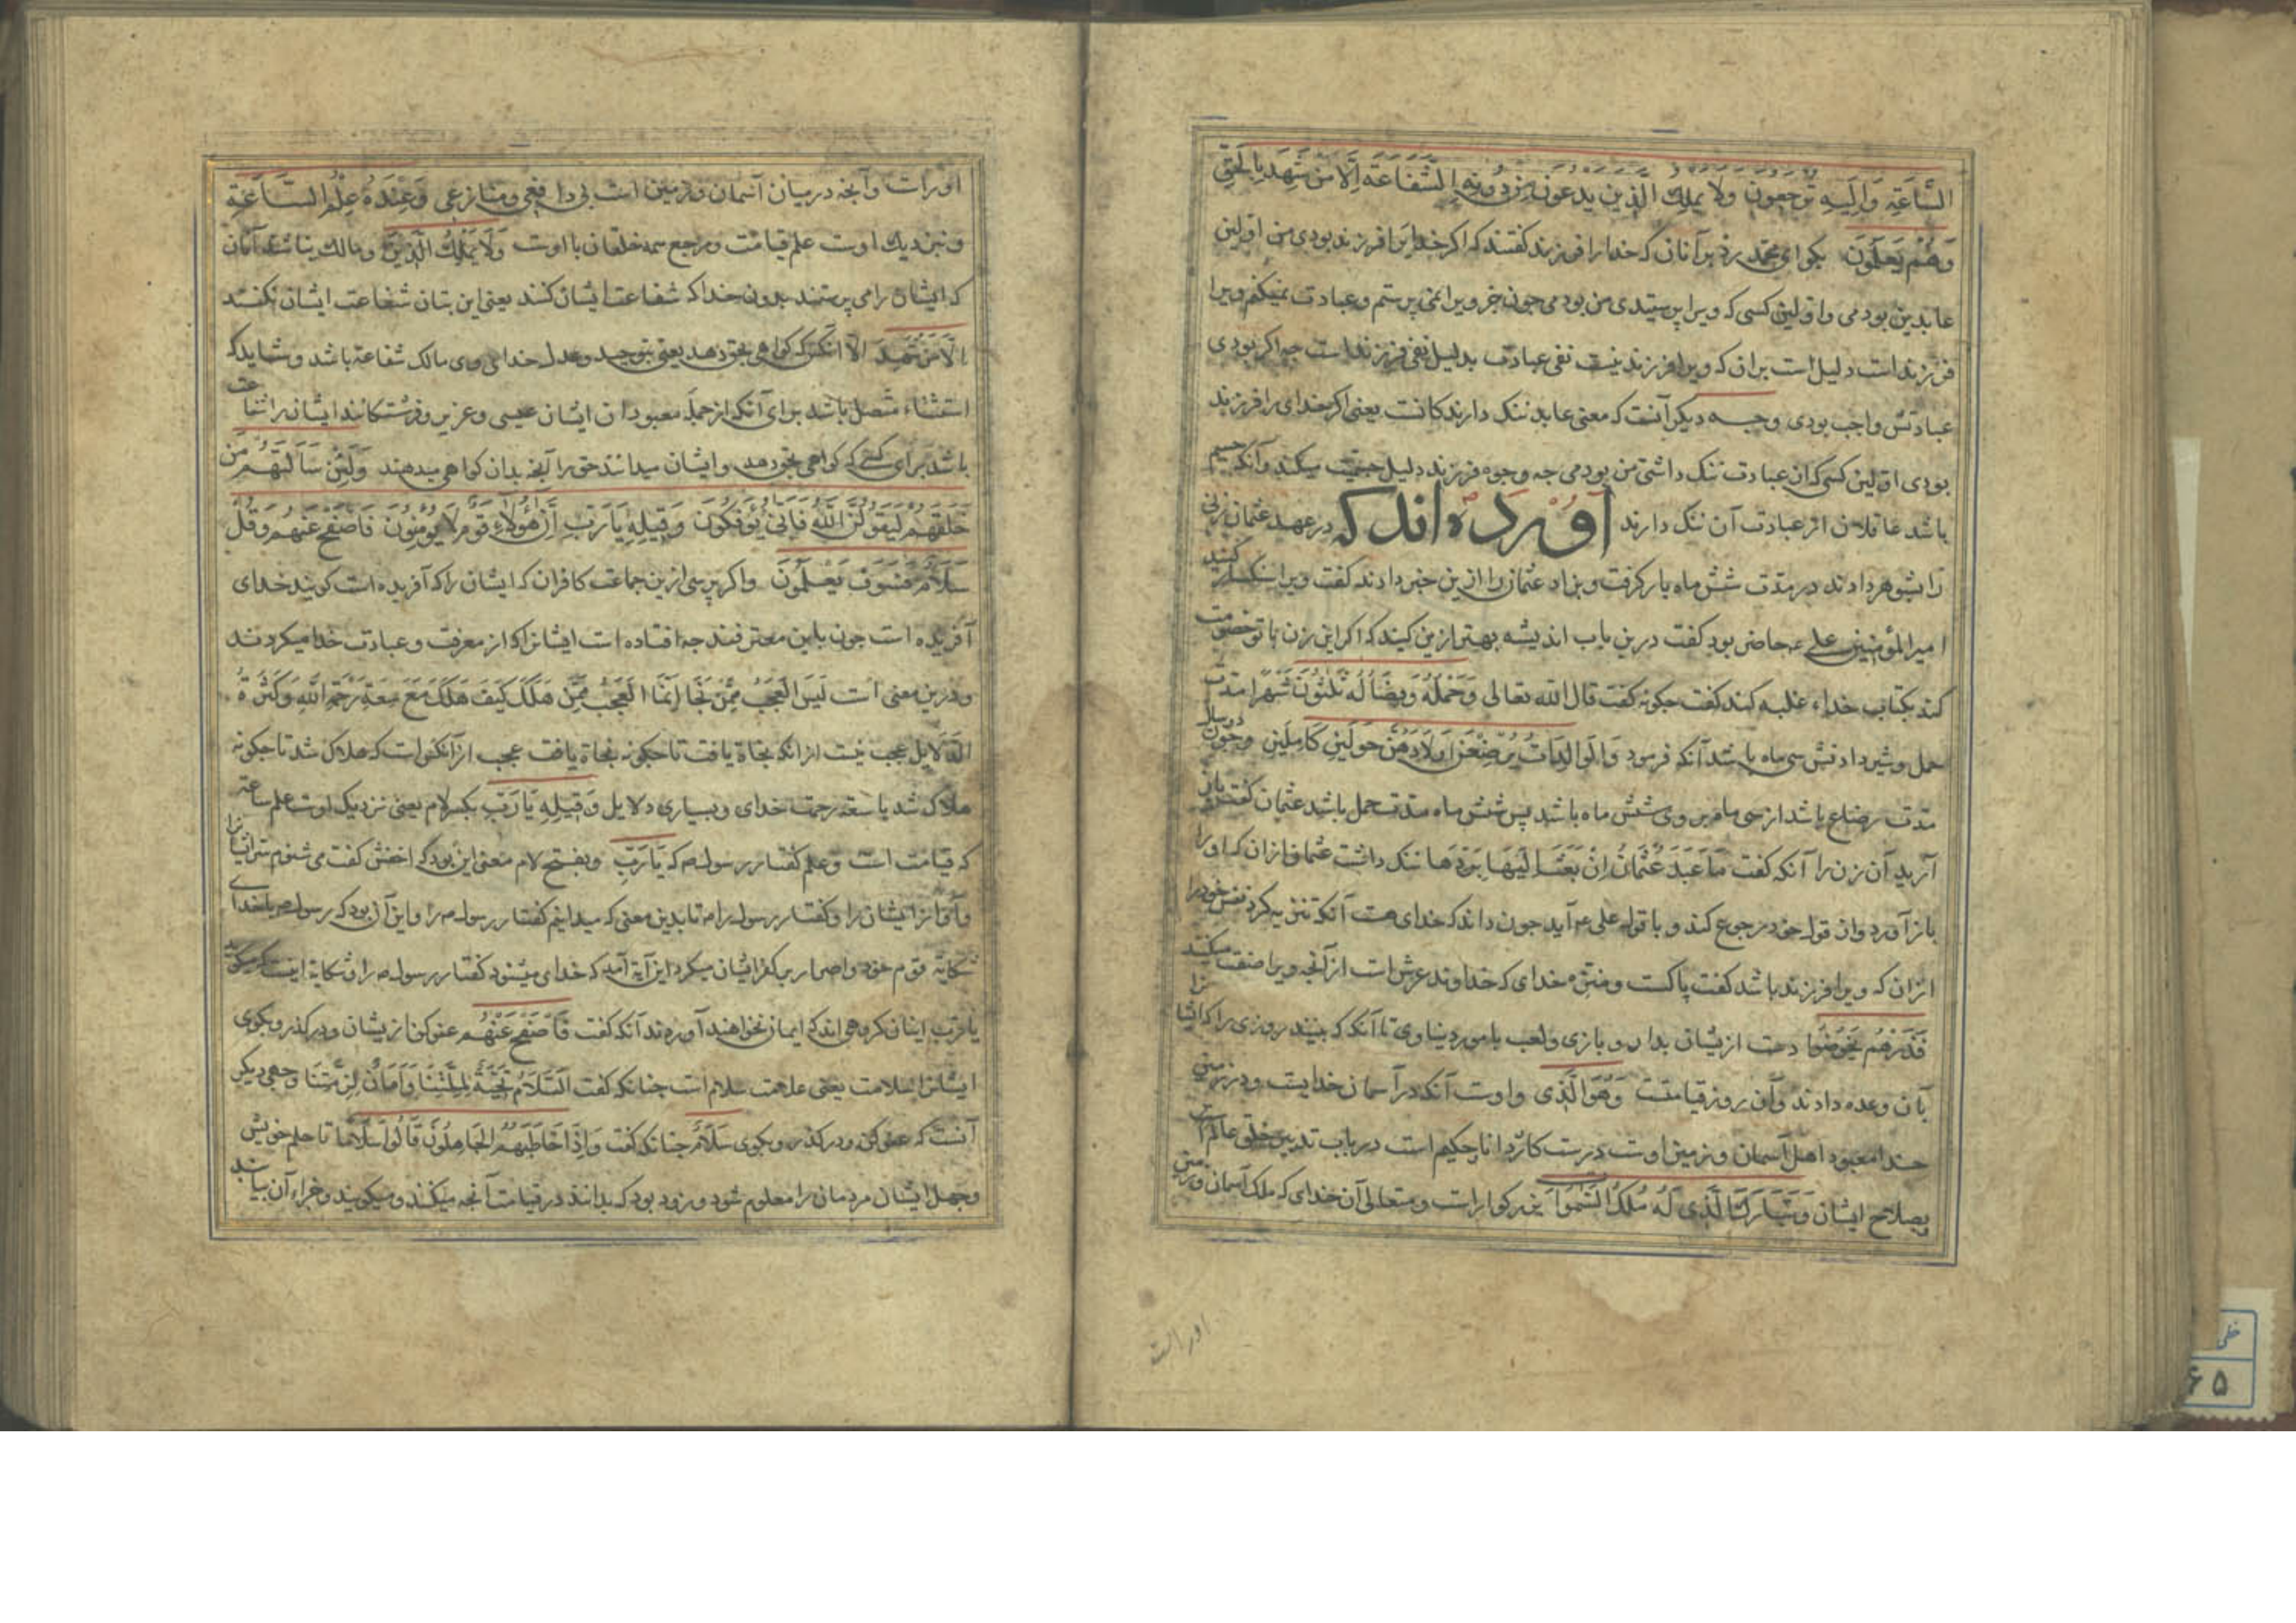 السَّاعَةِ وَاِلَيهِ تُرجَعونَ ولا يَملِكُ الَّذينَ يَدعونَ مِن دُونِهِ الشَّفَاعَةَ اِلَّا مَن شَهِدَ بِالحَقِّ
وَهُم يَعلَمُونَ بكو اى محمد رد بر آنان كه خدا را فرزند كفتند كه اكر خدايرا فرزند بودى من اولين
عابدين بودمى و اولين كسى كه ويرا پرستيدى من بودمى جون جز ويرا نمى پرستم و عبادت نميكنم ويرا
فرزند است دليل است بران كه ويرا فرزند نيست نفى عبادت بدليل نفى فرزند است جه اكر بودى
عبادتش واجب بودى وجــه ديكر آنست كه معنى عابد ننك دارند كانست يعنى اكر خداى را فرزند
بودى اولين كسى كه ازان عبادت ننك داشتى من بودمى جه وجوه فرزند دليل جسميت ميكند وآنكه جسم
باشد عاقلان از عبادت آن ننك دارند آورده اند كه در عهد عثمان زنى
را بشوهر دادند در مدت شش ماه بار كرفت و بزاد عثمان را ازين خبر دادند كفت ويرا سنكسار كنيد
امير المؤمنين على ع حاضر بود كفت درين باب انديشه بهتر ازين كنيد كه اكر اين زن با تو خصومت
كند بكتاب خداء غلبه كند كفت جكونه كفت قال الله تعالى وَحَملُهُ وَفِصَالُهُ ثَلٰثُونَ شَهرًا مدت
حمل و شير دادنش سى ماه باشد آنكه فرمود وَالوَالِدَاتُ يُرضِعنَ اَولَادَهُنَّ حَولَينِ كَامِلَينِ وجون دو سال
مدت رضاع باشد از سى ماه بروى شش ماه باشد پس شش ماه مدت حمل باشد عثمان كفت باز
آريد آن زن را آنكه كفت مَا عَبَدَ عُثمَانُ اِن بَعَثَ اِلَيهَا بِرَدِّهَا ننك داشت عثمان ازان كه او را
باز آورد وان قول خود رجوع كند و با قول على ع آيد جون داند كه خداى هست آنكه تنزيه كرد نفس خود را
ازان كه ويرا فرزند باشد كفت پاكست و منزه خداى كه خداوند عرش است از آنجه ويرا صفت ميكنند
فَذَرهُم يَخُوضُوا دست ازيشان بدار و بازى ولعب بامور دنياوى تا آنكه كه ببينند روزى را كه ايشانرا
بآن وعده دادند وآن روز قيامتست وَهُوَ الَّذِى واوست آنكه در آسمان خدايست ودر زمين
خدا معبود اهل آسمان و زمين اوست درست كار و دانا حكيم است در باب تدبير خلق عالم است
بصلاح ايشان وَتَبَارَكَ الَّذِى لَهُ مُلكُ السَّمٰوَاتِ بزركوار است و متعالى آن خداى كه ملك آسمان و زمين
اوراست
اوراست وآنجه درميان آسمان وزمين است بى دافعى ومنازعى وَعِندَهُ عِلمُ السَّاعَةِ
ونزديك اوست علم قيامت ومرجع همه خلقان با اوست وَلَا يَملِكُ الَّذِينَ ومالك نباشند آنان
كه ايشان را مى پرستند بدون خدا كه شفاعت ايشان كنند يعنى اين بتان شفاعت ايشان نكنند
اِلَّا مَن شَهِدَ الا آنكس كه كواهى بحق دهد يعنى بتوحيد وعدل خداى وى مالك شفاعة باشد وشايد كه
استثناء متصل باشد براى آنكه از جمله معبودان ايشان عيسى وعزير وفرشتكانند ايشان را شفاعت
باشد براى كسى كه كواهى بحق دهد وايشان ميدانند حق را آنجه بدان كواهى ميدهند وَلَئِن سَاَلتَهُم مَن
خَلَقَهُم لَيَقُولُنَّ اللّٰهُ فَاَنّىٰ يُؤفَكُونَ وَقِيلِهِ يَا رَبِّ اِنَّ هٰؤُلَاءِ قَومٌ لَا يُؤمِنُونَ فَاصفَح عَنهُم وَقُل
سَلَامٌ فَسَوفَ يَعلَمُونَ واكر پرسى ازين جماعت كافران كه ايشان را كه آفريده است كويند خداى
آفريده است جون باين معترفند جه افتاده است ايشانرا كه از معرفت و عبادت خدا ميكردند
ودرين معنى است لَيسَ العَجَبُ مِمَّن نَجَا اِنَّمَا العَجَبُ مِمَّن هَلَكَ كَيفَ هَلَكَ مَعَ سِعَةِ رَحمَةِ اللّٰهِ وَكَثرَةِ
الدَّلَايِل عجب نيست از آنكه نجاة يافت تا جكونه نجاة يافت عجب از آنكس است كه هلاك شد تا جكونه
هلاك شد با سعة رحمت خداى وبسيارى دلايل وَقِيلِهِ يَا رَبِّ بكسر لام يعنى نزديك اوست علم ساعة
كه قيامت است وعلم كفتار رسول ص كه يَا رَبِّ وبفتح لام معنى اين بود كه اخفش كفت مى شنوم سر ايشانرا
وآواز ايشان را وكفتار رسول را ص تا بدين معنى كه ميدانيم كفتار رسول ص را واين آن بود كه رسول ص با خداى
شكاية قوم خود واصرار بر كفر ايشان ميكرد اين آية آمد كه خداى ميشنود كفتار رسول ص را وشكاية اينست كه ميكويد
يا رب اينان كروهى اند كه ايمان نخواهند آورد آنكه كفت فَاصفَح عَنهُم عفو كن ازيشان ودركذر وبكوى
ايشانرا سلامت يعنى علامت سلام است جنانكه كفت اَلسَّلَامُ تَحِيَّةٌ لِمِلَّتِنَا وَاَمَانٌ لِذِمَّتِنَا وجهى ديكر
آنست كه عفو كن ودركذر وبكوى سَلَامٌ جنانكه كفت وَاِذَا خَاطَبَهُمُ الجَاهِلُونَ قَالُوا سَلَامًا تا حلم خويش
وجهل ايشان مردمان را معلوم شود و زود بود كه بدانند در قيامت آنجه ميكنند وميكويند وجزاء آن بيابند
خطى
۶۵